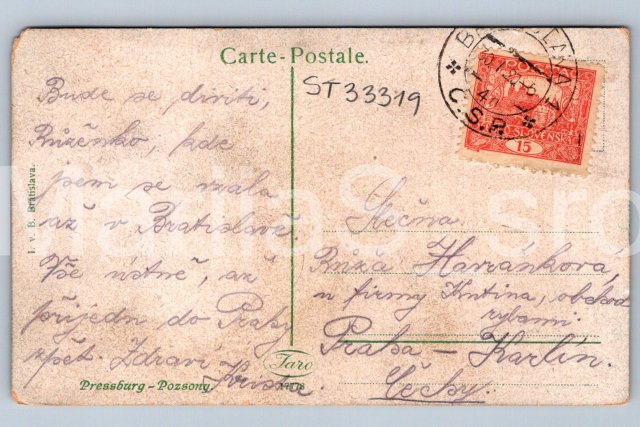 Carte-Postale.
ST33319
BRATISLAVA 1
Č.S.P.
ČESKOSLOVENSKÁ
15
Bude se diviti,
Růženko, kde
jsem se vzala
až v Bratislavě.
Vše ústně, až
přijedu do Prahy
zpět. Zdraví
Slečna
Růža Havránkova,
u firmy Kutina, obchod
rybami.
Praha – Karlín.
Čechy.
I. v. B. Bratislava.
Pressburg - Pozsony.
Taro